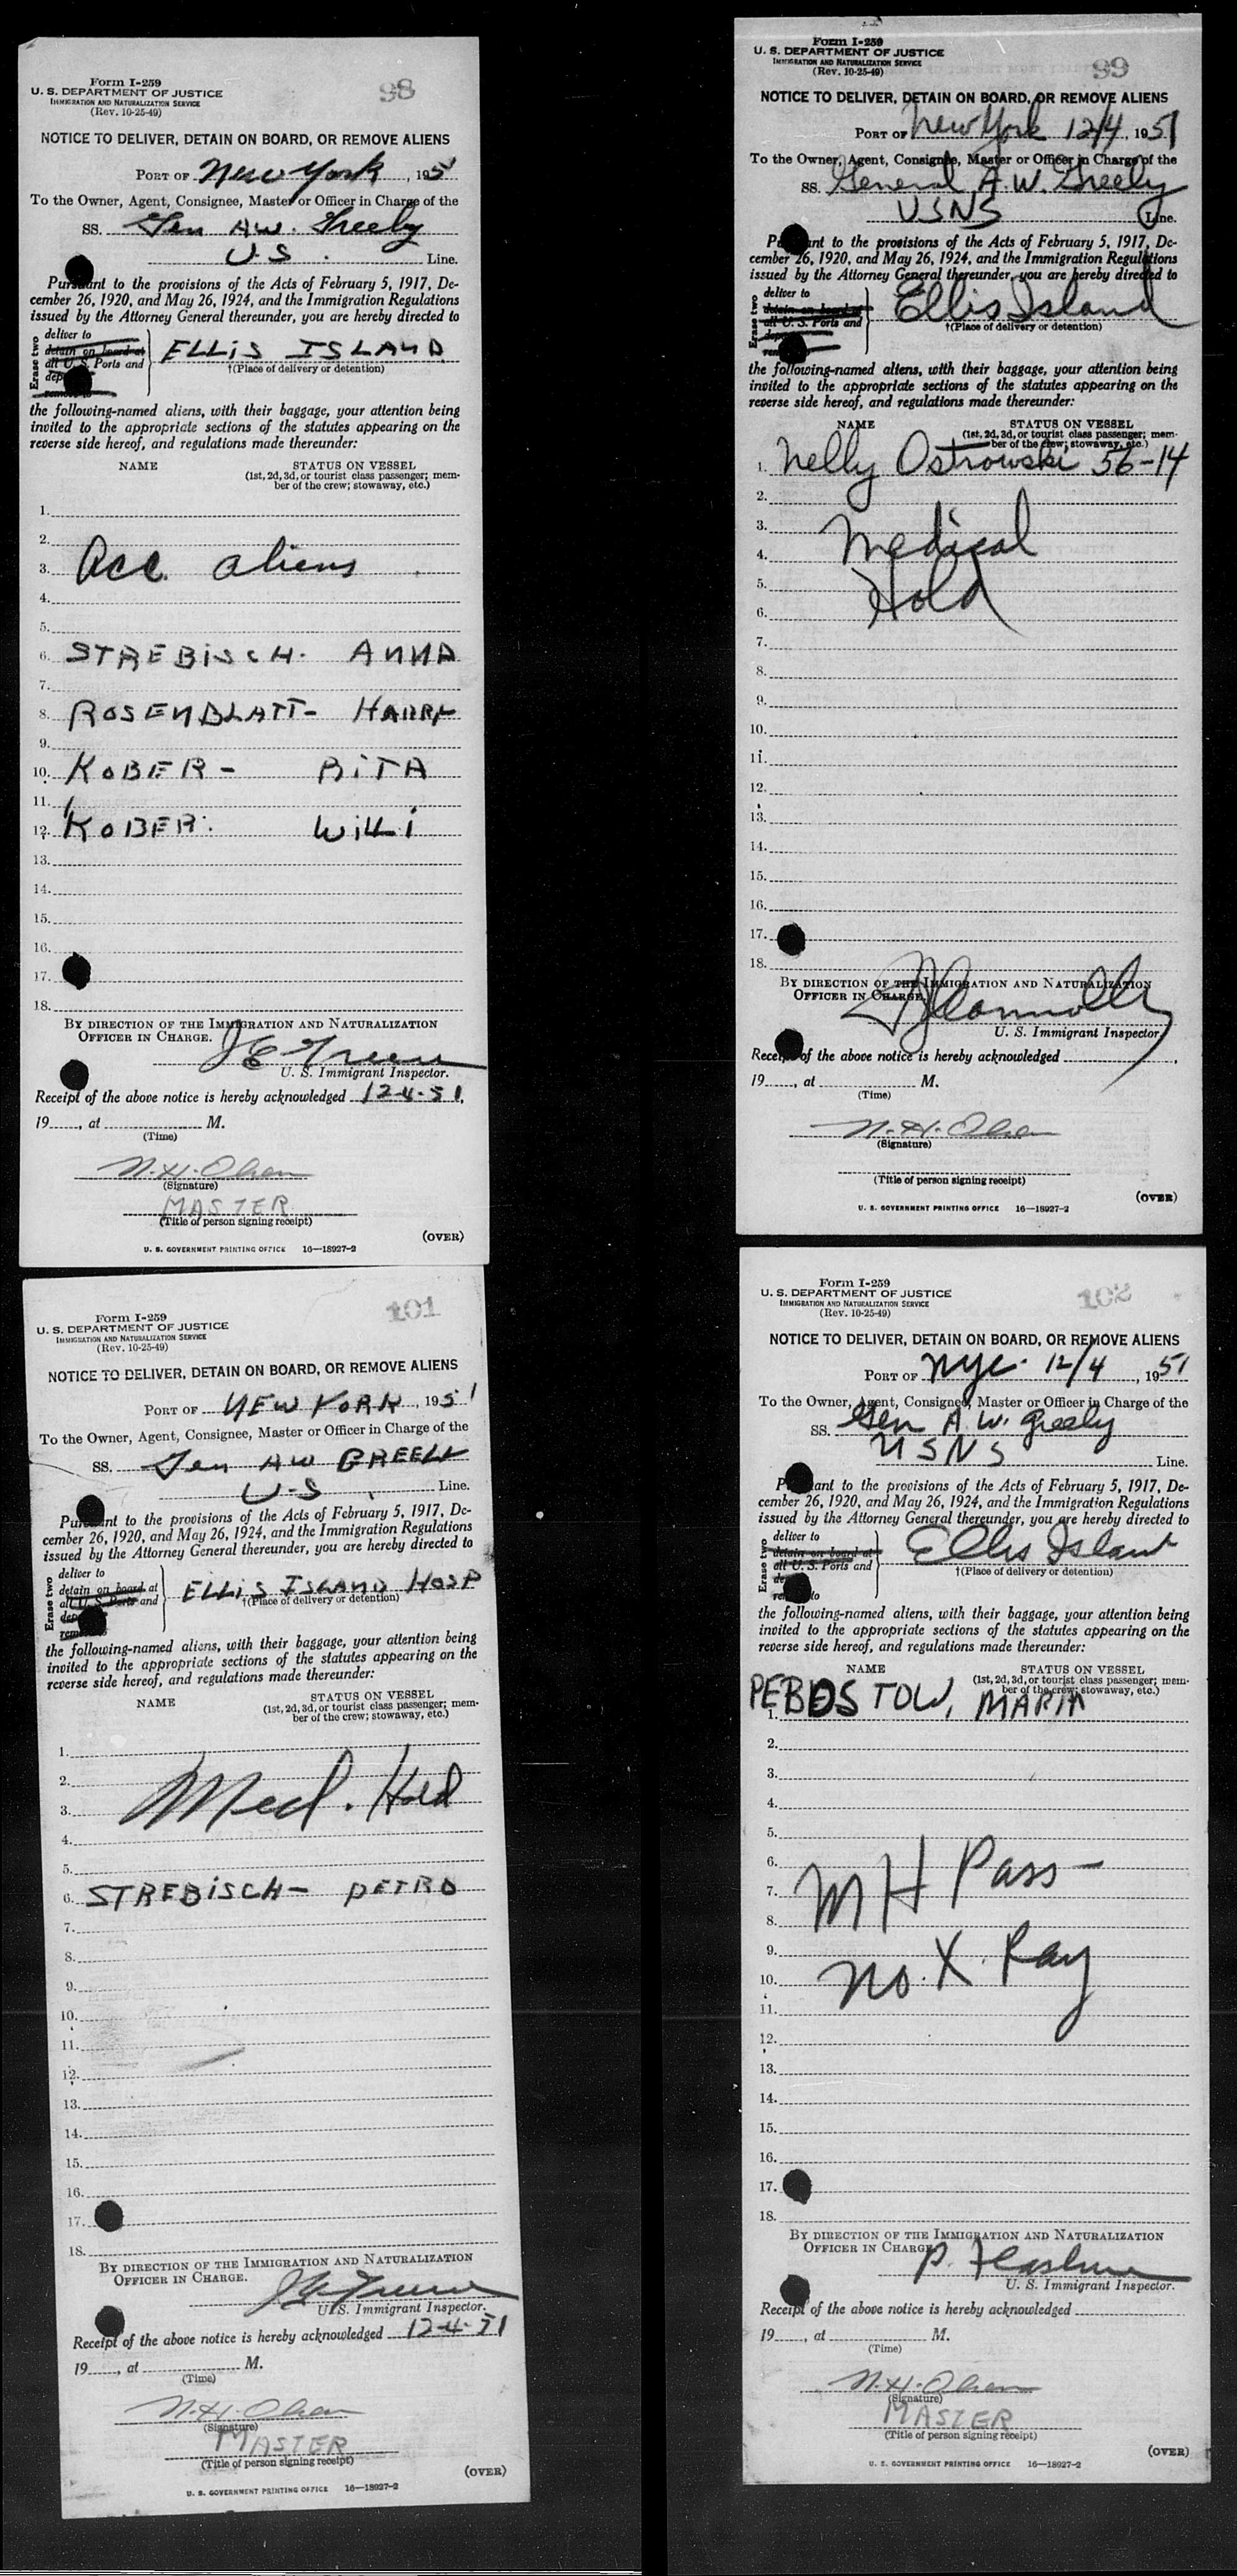 Form I-259
U. S. DEPARTMENT OF JUSTICE
IMMIGRATION AND NATURALIZATION SERVICE
(Rev. 10-25-49)
98
NOTICE TO DELIVER, DETAIN ON BOARD, OR REMOVE ALIENS
PORT OF New York, 195
To the Owner, Agent, Consignee, Master or Officer in Charge of the
SS. Gen AW. Greely
U.S. Line.
Pursuant to the provisions of the Acts of February 5, 1917, De-
cember 26, 1920, and May 26, 1924, and the Immigration Regulations
issued by the Attorney General thereunder, you are hereby directed to
Erase two
deliver to
detain on board at
all U. S. Ports and
dep
remove to
ELLIS ISLAND
†(Place of delivery or detention)
the following-named aliens, with their baggage, your attention being
invited to the appropriate sections of the statutes appearing on the
reverse side hereof, and regulations made thereunder:
NAME STATUS ON VESSEL
(1st, 2d, 3d, or tourist class passenger; mem-
ber of the crew; stowaway, etc.)
1.
2.
3. Acc. aliens
4.
5.
6. STREBISCH. ANNA
7.
8. ROSENBLATT- HARRY
9.
10. KOBER- RITA
11.
12. KOBER. WILLI
13.
14.
15.
16.
17.
18.
BY DIRECTION OF THE IMMIGRATION AND NATURALIZATION
OFFICER IN CHARGE.
J E Greene
U. S. Immigrant Inspector.
Receipt of the above notice is hereby acknowledged 12-4-51,
19, at M.
(Time)
N. H. Olsen
(Signature)
MASTER
(Title of person signing receipt)
(OVER)
U. S. GOVERNMENT PRINTING OFFICE 16—18927-2
Form I-259
U. S. DEPARTMENT OF JUSTICE
IMMIGRATION AND NATURALIZATION SERVICE
(Rev. 10-25-49)
99
NOTICE TO DELIVER, DETAIN ON BOARD, OR REMOVE ALIENS
PORT OF New York 12/4, 1951
To the Owner, Agent, Consignee, Master or Officer in Charge of the
SS. General A. W. Greely
USNS Line.
Pursuant to the provisions of the Acts of February 5, 1917, De-
cember 26, 1920, and May 26, 1924, and the Immigration Regulations
issued by the Attorney General thereunder, you are hereby directed to
Erase two
deliver to
detain on board at
all U. S. Ports and
rem
Ellis Island
†(Place of delivery or detention)
the following-named aliens, with their baggage, your attention being
invited to the appropriate sections of the statutes appearing on the
reverse side hereof, and regulations made thereunder:
NAME STATUS ON VESSEL
(1st, 2d, 3d, or tourist class passenger; mem-
ber of the crew; stowaway, etc.)
1. Nelly Ostrowski 56-14
2.
3.
4. Medical
5.
6. Hold
7.
8.
9.
10.
11.
12.
13.
14.
15.
16.
17.
18.
BY DIRECTION OF THE IMMIGRATION AND NATURALIZATION
OFFICER IN CHARGE.
U. S. Immigrant Inspector.
Receipt of the above notice is hereby acknowledged,
19, at M.
(Time)
N. H. Olsen
(Signature)
(Title of person signing receipt)
(OVER)
U. S. GOVERNMENT PRINTING OFFICE 16—18927-2
Form I-259
U. S. DEPARTMENT OF JUSTICE
IMMIGRATION AND NATURALIZATION SERVICE
(Rev. 10-25-49)
101
NOTICE TO DELIVER, DETAIN ON BOARD, OR REMOVE ALIENS
PORT OF NEW YORK, 1951
To the Owner, Agent, Consignee, Master or Officer in Charge of the
SS. Gen AW GREELY
U-S Line.
Pursuant to the provisions of the Acts of February 5, 1917, De-
cember 26, 1920, and May 26, 1924, and the Immigration Regulations
issued by the Attorney General thereunder, you are hereby directed to
Erase two
deliver to
detain on board at
all U. S. Ports and
dep
rem
ELLIS ISLAND HOSP
†(Place of delivery or detention)
the following-named aliens, with their baggage, your attention being
invited to the appropriate sections of the statutes appearing on the
reverse side hereof, and regulations made thereunder:
NAME STATUS ON VESSEL
(1st, 2d, 3d, or tourist class passenger; mem-
ber of the crew; stowaway, etc.)
1.
2.
3. Med. Hold
4.
5.
6. STREBISCH- PETRO
7.
8.
9.
10.
11.
12.
13.
14.
15.
16.
17.
18.
BY DIRECTION OF THE IMMIGRATION AND NATURALIZATION
OFFICER IN CHARGE.
J E Greene
U. S. Immigrant Inspector.
Receipt of the above notice is hereby acknowledged 12-4-51
19, at M.
(Time)
N. H. Olsen
(Signature)
MASTER
(Title of person signing receipt)
(OVER)
U. S. GOVERNMENT PRINTING OFFICE 16—18927-2
Form I-259
U. S. DEPARTMENT OF JUSTICE
IMMIGRATION AND NATURALIZATION SERVICE
(Rev. 10-25-49)
102
NOTICE TO DELIVER, DETAIN ON BOARD, OR REMOVE ALIENS
PORT OF NYC. 12/4, 1951
To the Owner, Agent, Consignee, Master or Officer in Charge of the
SS. Gen A. W. Greely
USNS Line.
Pursuant to the provisions of the Acts of February 5, 1917, De-
cember 26, 1920, and May 26, 1924, and the Immigration Regulations
issued by the Attorney General thereunder, you are hereby directed to
Erase two
deliver to
detain on board at
all U. S. Ports and
de
remove to
Ellis Island
†(Place of delivery or detention)
the following-named aliens, with their baggage, your attention being
invited to the appropriate sections of the statutes appearing on the
reverse side hereof, and regulations made thereunder:
NAME STATUS ON VESSEL
(1st, 2d, 3d, or tourist class passenger; mem-
ber of the crew; stowaway, etc.)
1. PEBOSTOW, MARIA
2.
3.
4.
5.
6.
7. MH Pass-
8.
9.
10. No. X. Ray
11.
12.
13.
14.
15.
16.
17.
18.
BY DIRECTION OF THE IMMIGRATION AND NATURALIZATION
OFFICER IN CHARGE.
P.
U. S. Immigrant Inspector.
Receipt of the above notice is hereby acknowledged
19, at M.
(Time)
N. H. Olsen
(Signature)
MASTER
(Title of person signing receipt)
(OVER)
U. S. GOVERNMENT PRINTING OFFICE 16—18927-2